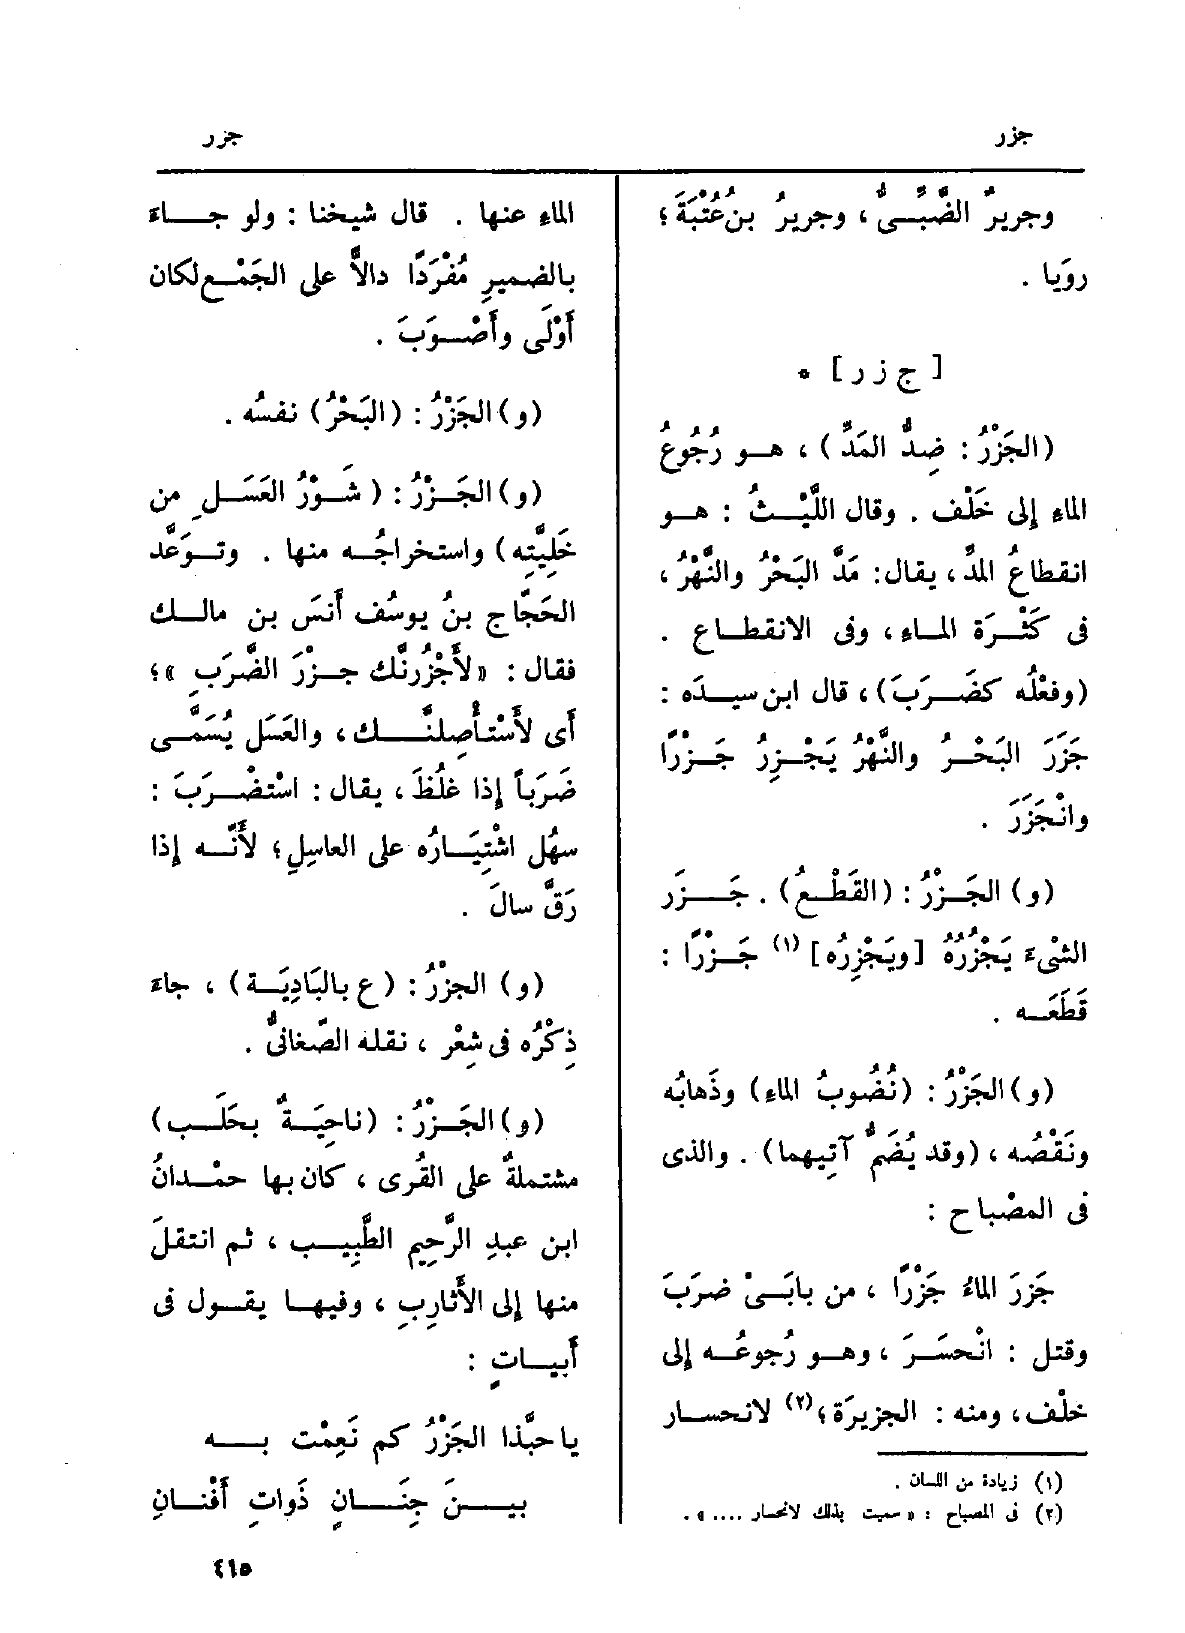 جزر
جزر
وجريرٌ الضَّبِّىُّ ، وجريرُ بن عُتْبَةَ ؛
رويَا .
[ ج ز ر ] *
(الجَزْرُ : ضِدُّ المَدِّ) ، هــو رُجُوعُ
الماءِ إلى خَلْف . وقال اللَّيْثُ : هــو
انقطاعُ المدِّ ، يقال : مَدَّ البَحْرُ والنَّهْرُ ،
فى كَثْرَة المــاءِ ، وفى الانقطــاع .
(وفعْلُه كضَرَبَ) ، قال ابن سيدَه :
جَزَرَ البَحْرُ والنَّهْرُ يَجْزِرُ جَزْرًا
وانْجَزَرَ .
(و) الجَزْرُ : (القَطْعُ) . جَزَر
الشىْءَ يَجْزُرُهُ [ويَجْزِرُه] (١) جَزْرًا :
قَطَعَــه .
(و) الجَزْرُ : (نُضُوبُ الماءِ) وذَهابُه
ونَقْصُه ، (وقد يُضَمُّ آتِيهما) . والذى
فى المصْباح :
جَزرَ الماءُ جَزْرًا ، من بابَىْ ضرَبَ
وقتل : انْحسَرَ ، وهــو رُجوعُــه إلى
خلْف ، ومنه : الجزيرَة ؛(٢) لانحسار
(١) زيادة من اللسان .
(٢) فى المصباح : « سميت بذلك لانحسار .... » .
الماءِ عنها . قال شيخنا : ولو جــاءَ
بالضميرِ مُفْرَدًا دالاًّ على الجَمْع لكان
أَوْلَى وأَصْوَبَ .
(و) الجَزْرُ : (البَحْرُ) نفسُه .
(و) الجَزْرُ : ( شَوْرُ العَسَلِ من
خَلِيَّتِه) واستخراجُــه منها . وتوَعَّد
الحَجَّاج بنُ يوسُف أَنسَ بن مالــك
فقال : «لأَجْزُرنَّك جزْرَ الضَّرَبِ » ؛
أَى لأَسْتأْصِلنَّــك ، والعَسَل يُسَمَّى
ضَرَباً إذا غلُظَ ، يقال : استْضْرَبَ :
سهُل اشْتِيَارُه على العاسِلِ ؛ لأَنَّــه إذا
رَقَّ سالَ .
(و) الجزْرُ : (ع بالبَادِيَــة) ، جاءَ
ذِكْرُه فى شِعْر ، نقله الصّغانىُّ .
(و) الجَزْرُ : (ناحِيَةٌ بحَلَب)
مشتملةٌ على القُرى ، كان بها حمْدانُ
ابن عبدِ الرَّحِيمِ الطَّبِيب ، ثم انتقلَ
منها إلى الأَثارِبِ ، وفيهــا يقــول فى
أَبيــاتٍ :
ياحبَّذا الجَزْرُ كم نَعِمْت بــه
بيــنَ جِنَــانٍ ذَواتِ أَفْنــانِ
٤٦٥